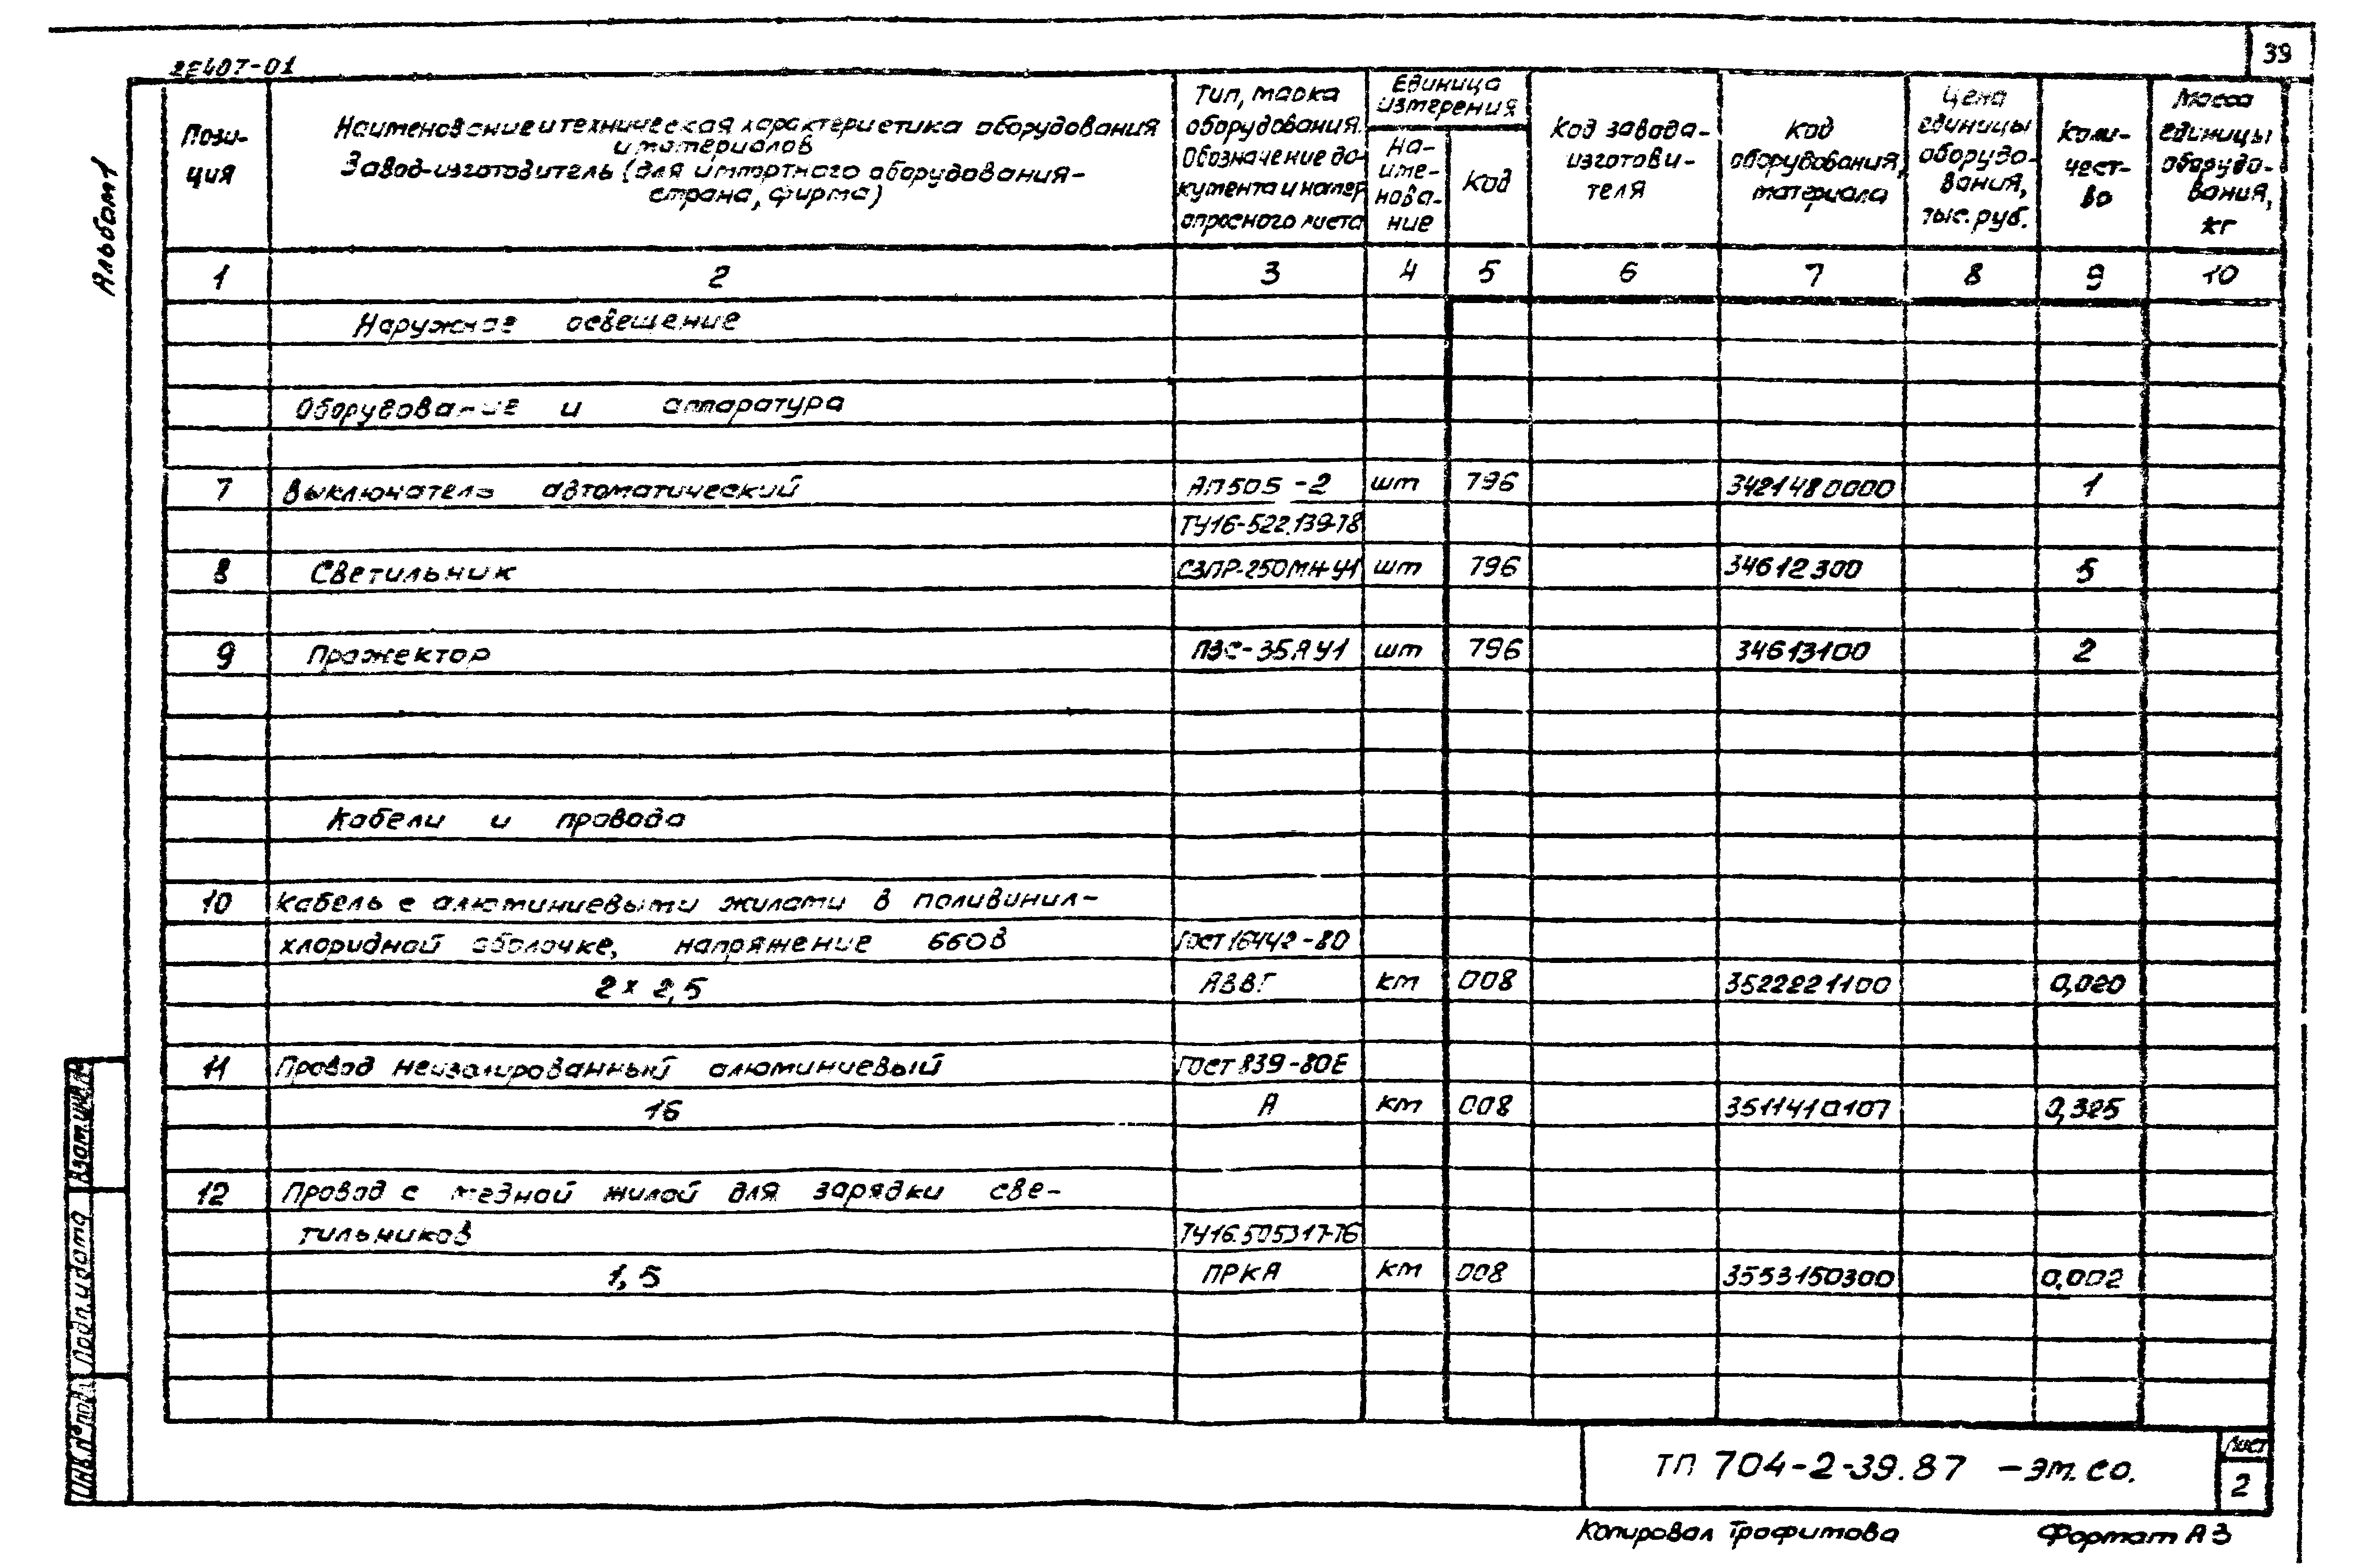 39
2Е407-01
Альбом 1
Пози-
ция
Наименование и техническая характеристика оборудования
и материалов
Завод-изготовитель (для импортного оборудования-
страна, фирма)
Тип, марка
оборудования.
Обозначение до-
кумента и номер
опросного листа
Единица
измерения
На-
име-
нова-
ние
Код
Код завода-
изготови-
теля
Код
оборудования,
материала
Цена
единицы
оборудо-
вания,
тыс. руб.
Коли-
чест-
во
Масса
единицы
оборудо-
вания,
кг
1 2 3 4 5 6 7 8 9 10
Наружное освещение
Оборудование и аппаратура
7 Выключатель автоматический АП505-2 шт 796 3421480000 1
ТУ16-522.139-78
8 Светильник СЗПР-250МН-У1 шт 796 34612300 5
9 Прожектор ПЗС-35АУ1 шт 796 34613100 2
Кабели и провода
10 Кабель с алюминиевыми жилами в поливинил-
хлоридной оболочке, напряжение 660В ГОСТ 16442-80
2х2,5 АВВГ км 008 3522221100 0,020
11 Провод неизолированный алюминиевый ГОСТ 839-80Е
16 А км 008 3511410107 0,325
12 Провод с медной жилой для зарядки све-
тильников ТУ16.505317-76
1,5 ПРКА км 008 3553150300 0,002
Взам. инв. №
Подп. и дата
Инв. № подл.
ТП 704-2-39.87 -ЭМ.СО.
Лист
2
Копировал Трофимова Формат А3